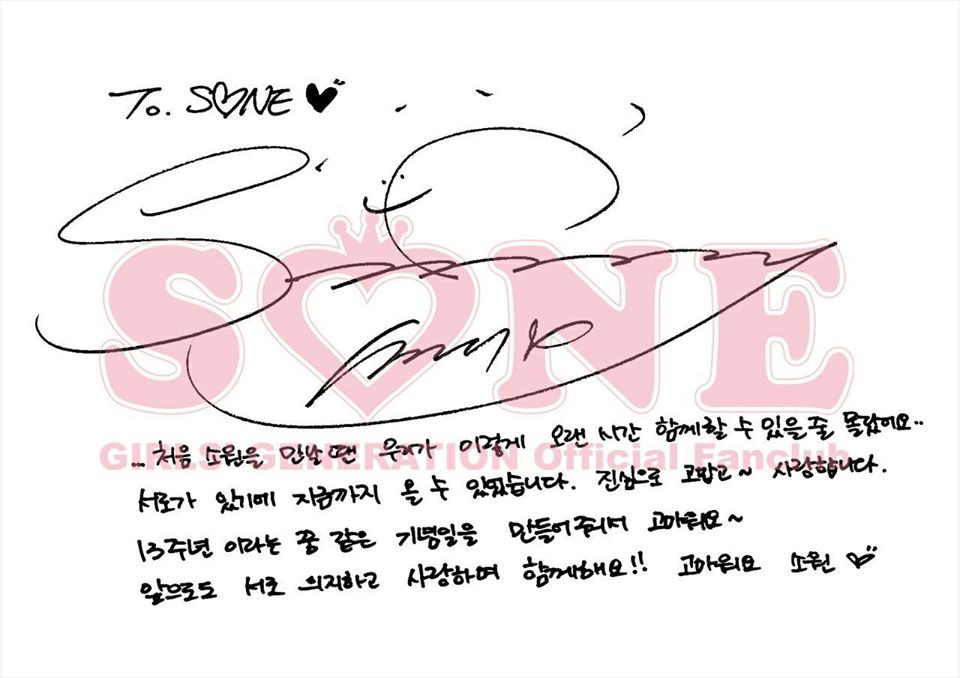 To. S♡NE ♥
SONE
GIRLS' GENERATION Official Fanclub
... 처음 소원을 만날 땐 우리가 이렇게 오랜 시간 함께할 수 있을 줄 몰랐어요..
서로가 있기에 지금까지 올 수 있었습니다. 진심으로 고맙고~ 사랑합니다.
13주년 이라는 꿈 같은 기념일을 만들어주셔서 고마워요~
앞으로도 서로 의지하고 사랑하며 함께해요!! 고마워요 소원 ♡